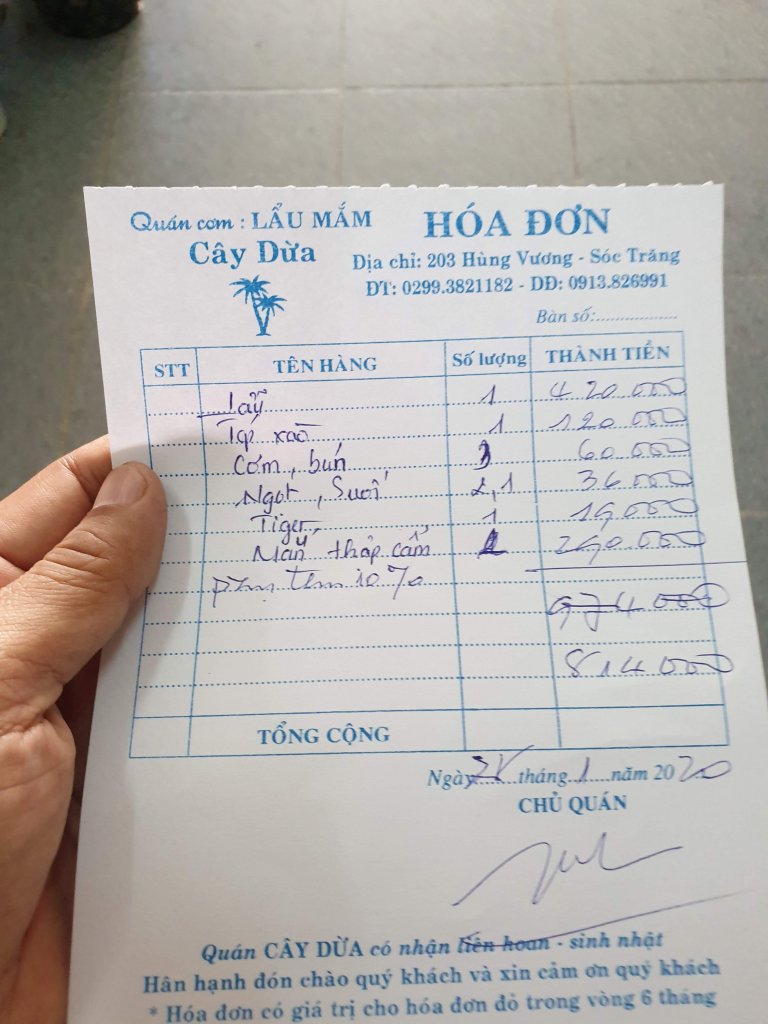 Quán cơm : LẨU MẮM
Cây Dừa
HÓA ĐƠN
Địa chỉ: 203 Hùng Vương - Sóc Trăng
ĐT: 0299.3821182 - DĐ: 0913.826991
Bàn số:.................
STT TÊN HÀNG Số lượng THÀNH TIỀN
Lẩu 1 420.000
Tép xào 1 120.000
Cơm, bún 3 60.000
Ngọt, Suối 2,1 36.000
Tiger 1 19.000
thập cẩm 290.000
10%
974.000
814.000
TỔNG CỘNG
Ngày tháng 1 năm 2020
CHỦ QUÁN
Quán CÂY DỪA có nhận liên hoan - sinh nhật
Hân hạnh đón chào quý khách và xin cảm ơn quý khách
* Hóa đơn có giá trị cho hóa đơn đỏ trong vòng 6 tháng